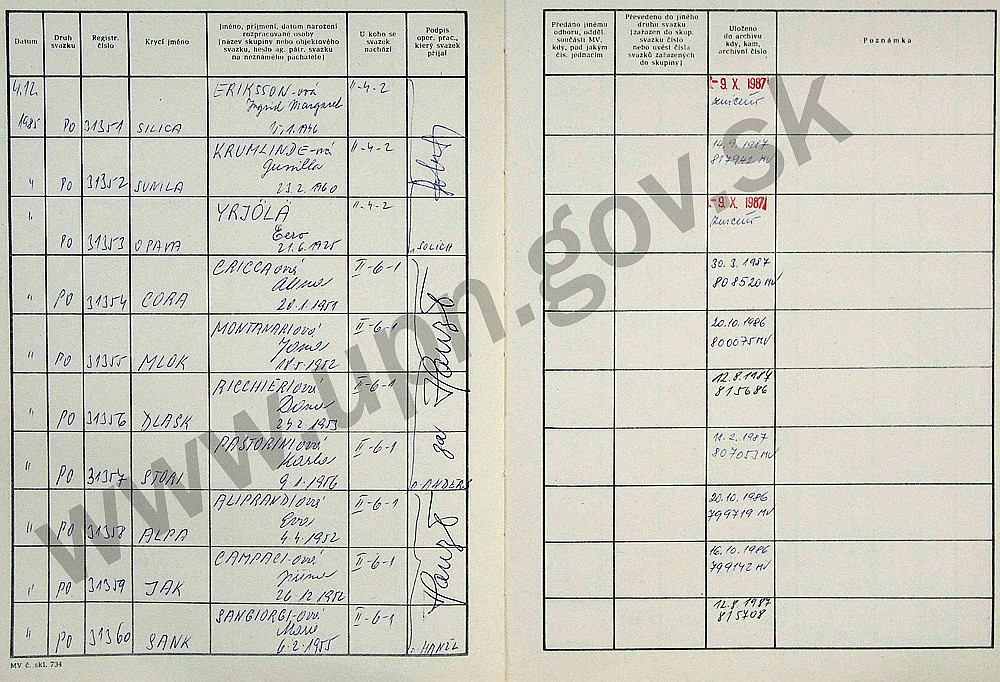 Datum
Druh svazku
Registr. číslo
Krycí jméno
Jméno, příjmení, datum narození
rozpracované osoby
[název skupiny nebo objektového
svazku, heslo ag. pátr. svazku
na neznámého pachatele]
U koho se
svazek
nachází
Podpis
oper. prac.,
který svazek
přijal
Předáno jinému
odboru, odděl.
součásti MV,
kdy, pod jakým
čís. jednacím
Převedeno do jiného
druhu svazku
[zařazen do skup.
svazku číslo
nebo uvést čísla
svazků zařazených
do skupiny]
Uloženo
do archivu
kdy, kam,
archivní číslo
Poznámka
4.12. 1985 PO 31351 SILICA ERIKSSON-ová Ingrid Margareth 15.1.1946 II-4-2 -9. X. 1987
" PO 31352 SUNILA KRUMLINDE-ová Gunilla 23.2.1960 II-4-2 14.9.1987 817942 MV
" PO 31353 OPAVA YRJÖLÄ Eero 21.6.1925 II-4-2 SOLICH -9. X. 1987
" PO 31354 CORA CRICCAová 20.1.1951 II-6-1 30.3.1987 808520 MV
" PO 31355 MLOK MONTANARIová 18.5.1952 II-6-1 20.10.1986 800075 MV
" PO 31356 DLASK RICCHIERIová II-6-1 za 12.8.1987 815686
" PO 31357 PASTORINIová Karla 9.1.1956 II-6-1 ANDERS 11.2.1987 807053 MV
" PO 31358 ALPA ALIPRANDIová Eva 4.4.1952 II-6-1 20.10.1986 799719 MV
" PO 31359 JAK CAMPACI-ová 26.12.1952 II-6-1 16.10.1986 799142 MV
" PO 31360 SANK SANGIORGI-ová 6.2.1955 II-6-1 HANZL 12.8.1987 815708
MV č. skl. 734
www.upn.gov.sk